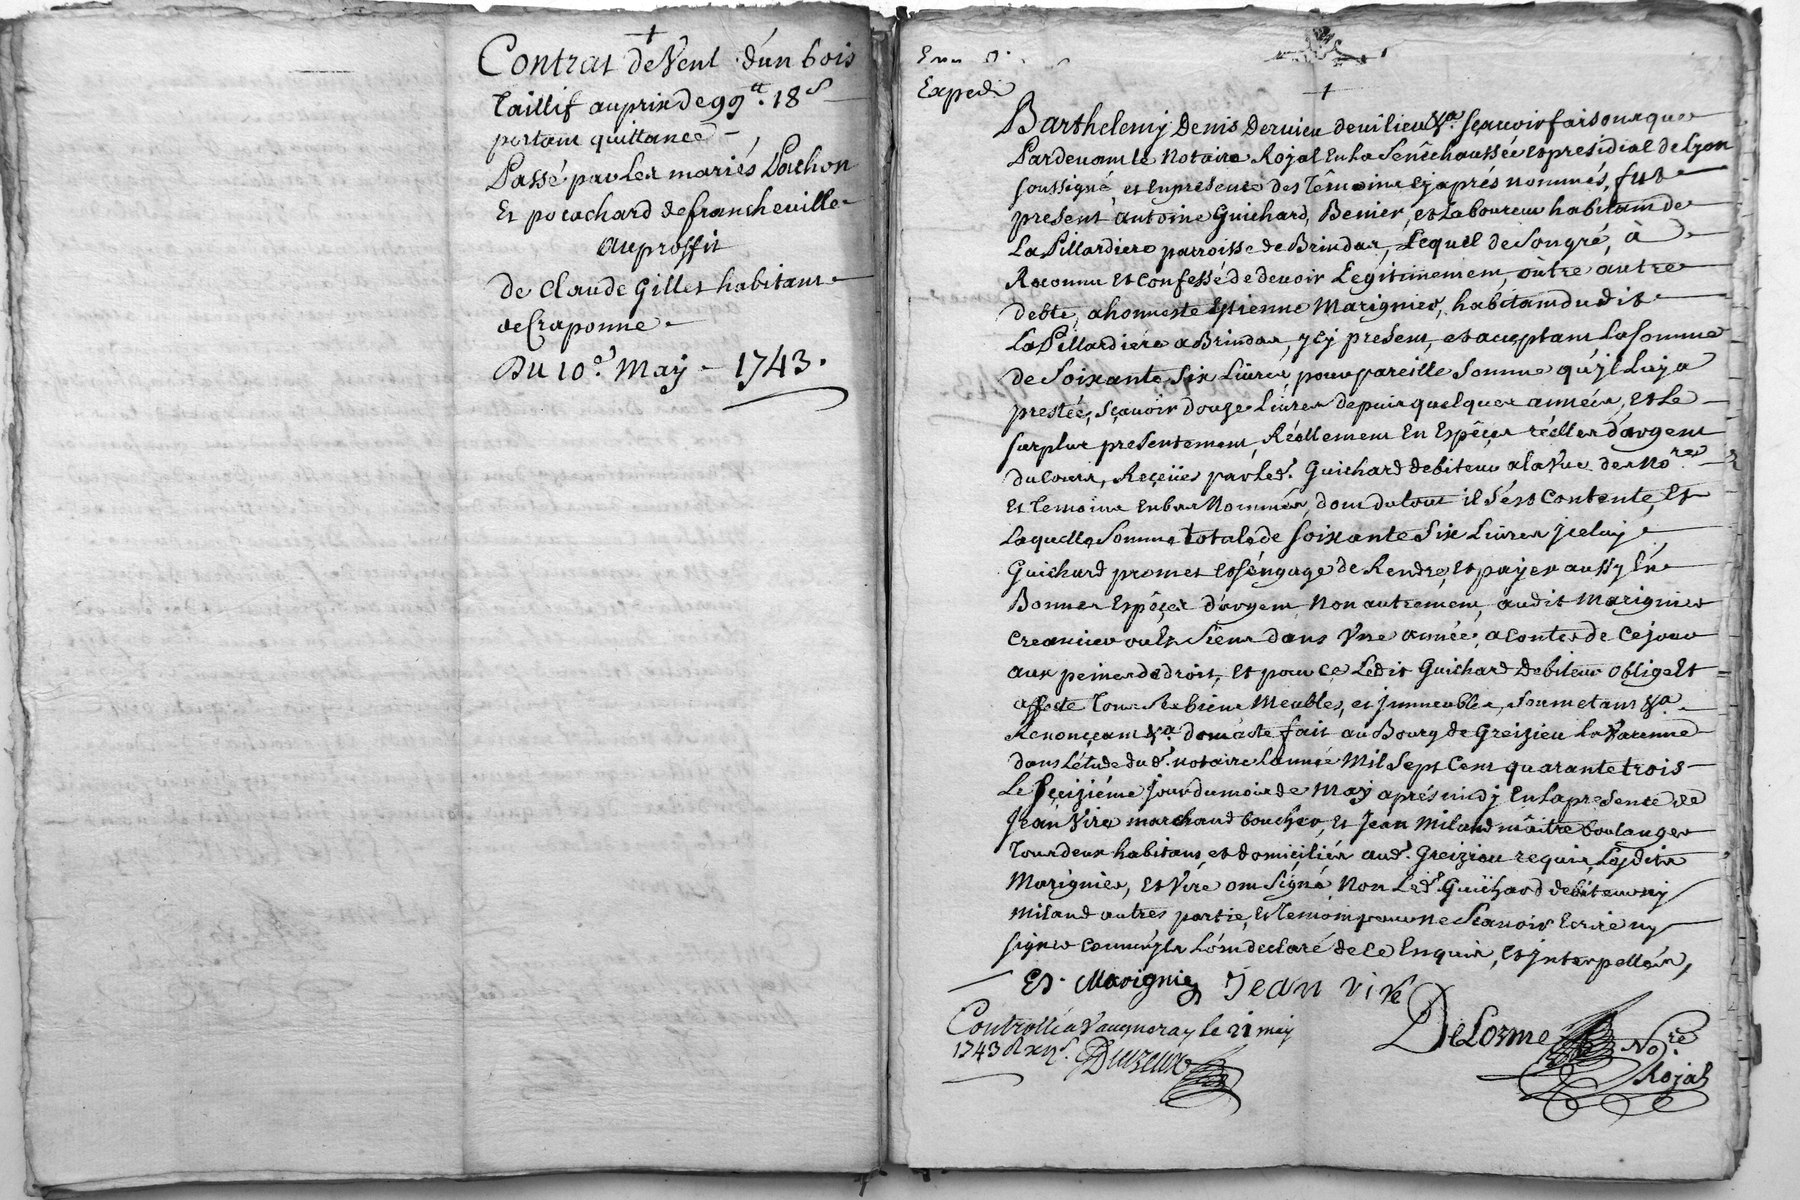 Contrat de Vent d'un bois
Taillif au prix de 99tt. 18s
portant quittance
Passé par les mariés Pachon
Et pocachard de francheville
Au proffit
de Claude Gillet habitant
de Craponne
Du 10e. May - 1743.
Expedi
Barthelemy Denis Dervieu de vilieu &a. sçavoir faisons que
Pardevant le Notaire Royal En la Senêchaussée et presidial de Lyon
soussigné et En presence des Têmoins cy aprés nommés, fut
present antoine Guichard, Benier, et Laboureur habitant de
La Pillardiere parroisse de Brindas, Lequel de son gré, à
Reconnu Et Confessé de devoir Legitimement, oûtre autre
debte, a honneste Estienne Marignier, habitant dudit
La Pillardiére a Brindas, y cy present, et acceptant La somme
de Soixante Six Livres pour pareille Somme qu'jl Luy a
prestée, Sçavoir douze Livres depuis quelques années, et Le
surplus presentement, Réellement En Espêçes réelles d'argent
du Cours, Reçeües par Led. Guichard debiteur a la vuë des Nore.
Et Temoins Enbas Nommés, dont du tout il s'est Contente, Et
Laquelle Somme totale de soixante Six Livres jceluy
Guichard promet et s'éngage de Rendre, et payer aussy En
Bonnes Espêçes d'argent Non autrement, audit Marignier
Creancier ou Es Siens dans Une année, a Conter de Ce jour
aux peines de droit, Et pour Ce Ledit Guichard Debiteur oblige Et
affecte Tous Ses biens Meubles, et jmmeubles, Soumetant &a.
Renonçeant &a. dont acte fait au Bourg de Greizieu la Varenne
dans L'étude dud. notaire L'année Mil Sept Cent quarante trois
Le seiziéme jour du mois de May aprés midy En la presence de
Jean Viré marchand boucher, et Jean Miland maître boulanger
Tous deux habitans, et domiciliés aud. Greizieu requis, Lesdits
Marignier, et Viré ont Signé Non Led. Guichard debiteur ny
Miland autres partie, Et Temoin pour ne Scavoir Ecrire ny
signer comme jls L'ont declaré de ce Enquis, et jnterpellés,
Et. Marignier Jean viré
Controllé a Vaugneray le 21 may
1743
DeLorme Nore.
Royal